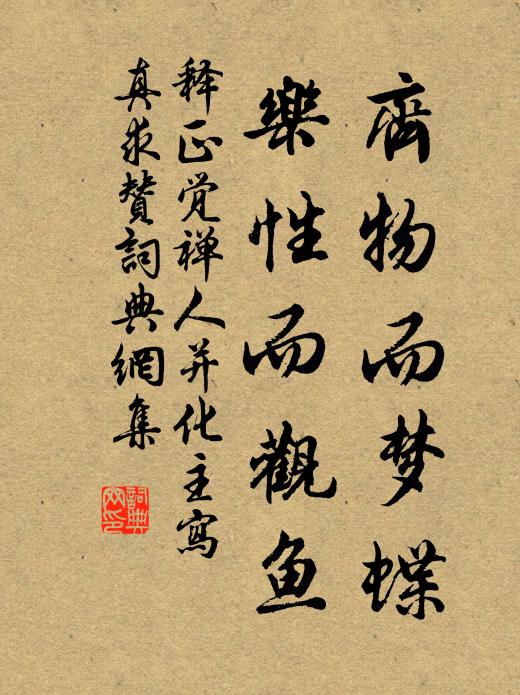 齊物而梦蝶
樂性而觀鱼
释正觉禅人并化主寫
真求赞詞典網集
詞典
网印